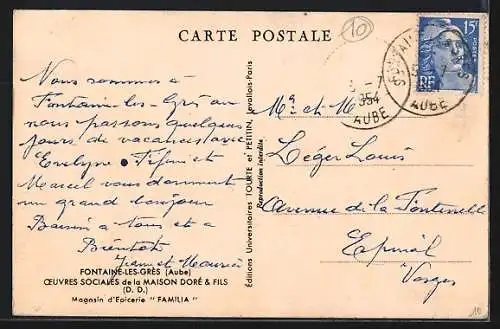 CARTE POSTALE
10
15F
RF
AUBE
- 7
954
AUBE
Nous sommes à
Fontaine-les-Grès où
nous passons quelques
jours de vacances avec
Evelyne • Fifini et
Marcel vous donnent
un grand bonjour
à tous et à
Bientôt
Jean et Maurice
Mr et M
Léger Louis
Avenue de la Fontenelle
Epinal
Vosges
Éditions Universitaires TOURTE et PETITIN, Levallois-Paris
Reproduction interdite
FONTAINE-LES-GRÈS (Aube)
ŒUVRES SOCIALES de la MAISON DORÉ & FILS
(D. D.)
Magasin d'Epicerie "FAMILIA"
10